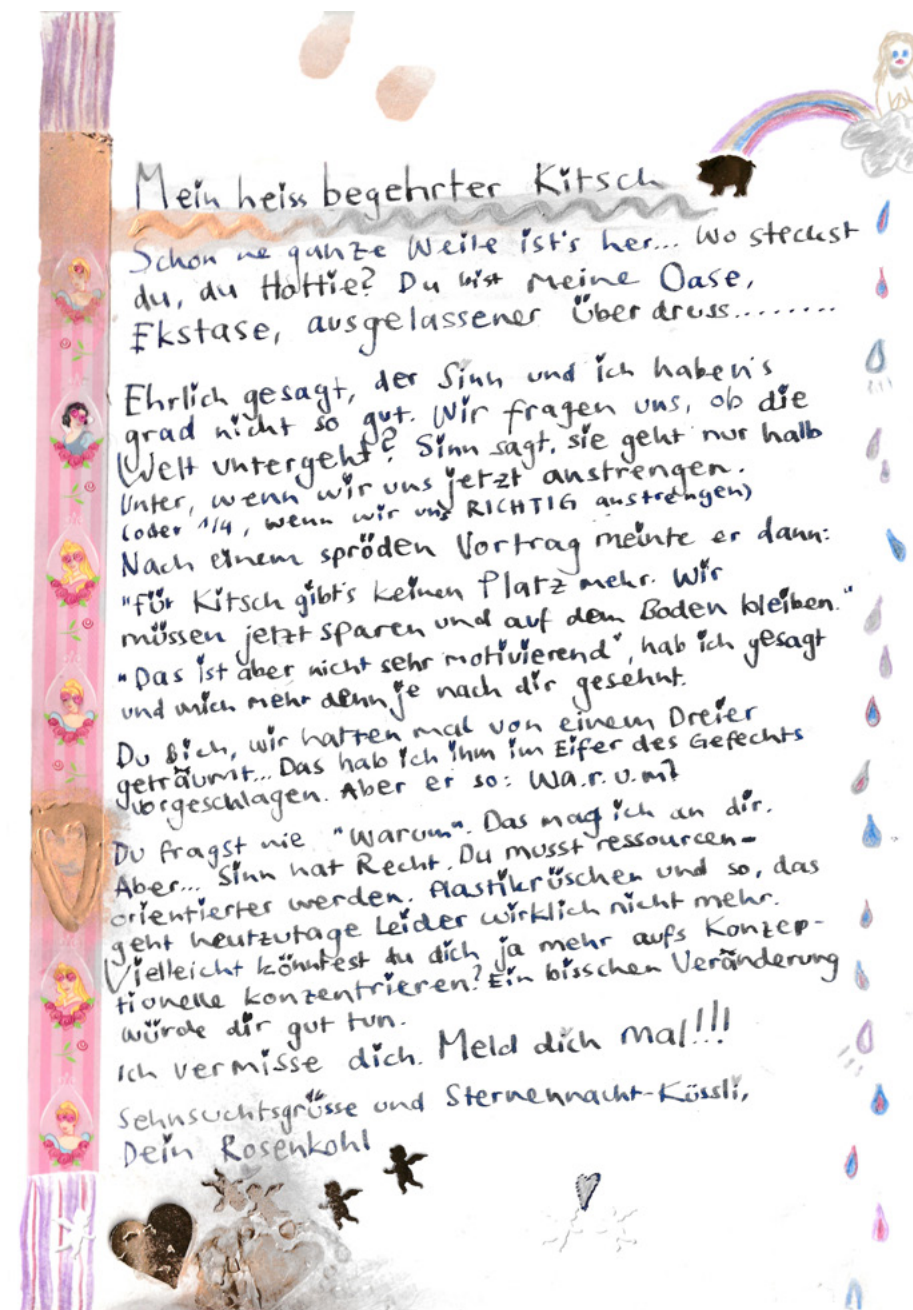 Mein heiss begehrter Kitsch
Schon ne ganze Weile ist's her... Wo steckst
du, du Hottie? Du bist meine Oase,
Ekstase, ausgelassener Überdruss........
Ehrlich gesagt, der Sinn und ich haben's
grad nicht so gut. Wir fragen uns, ob die
Welt untergeht? Sinn sagt, sie geht nur halb
unter, wenn wir uns jetzt anstrengen.
(oder 1/4, wenn wir uns RICHTIG anstrengen)
Nach einem spröden Vortrag meinte er dann:
"Für Kitsch gibt's keinen Platz mehr. Wir
müssen jetzt sparen und auf dem Boden bleiben."
"Das ist aber nicht sehr motivierend", hab ich gesagt
und mich mehr denn je nach dir gesehnt.
Du & ich, wir hatten mal von einem Dreier
geträumt... Das hab ich ihm im Eifer des Gefechts
vorgeschlagen. Aber er so: Wa.r.u.m?
Du fragst nie "Warum". Das mag ich an dir.
Aber... Sinn hat Recht. Du musst ressourcen-
orientierter werden. Plastikrüschen und so, das
geht heutzutage leider wirklich nicht mehr.
Vielleicht könntest du dich ja mehr aufs Konzep-
tionelle konzentrieren? Ein bisschen Veränderung
würde dir gut tun.
Ich vermisse dich. Meld dich mal!!!
Sehnsuchtsgrüsse und Sternennacht-Küssli,
Dein Rosenkohl